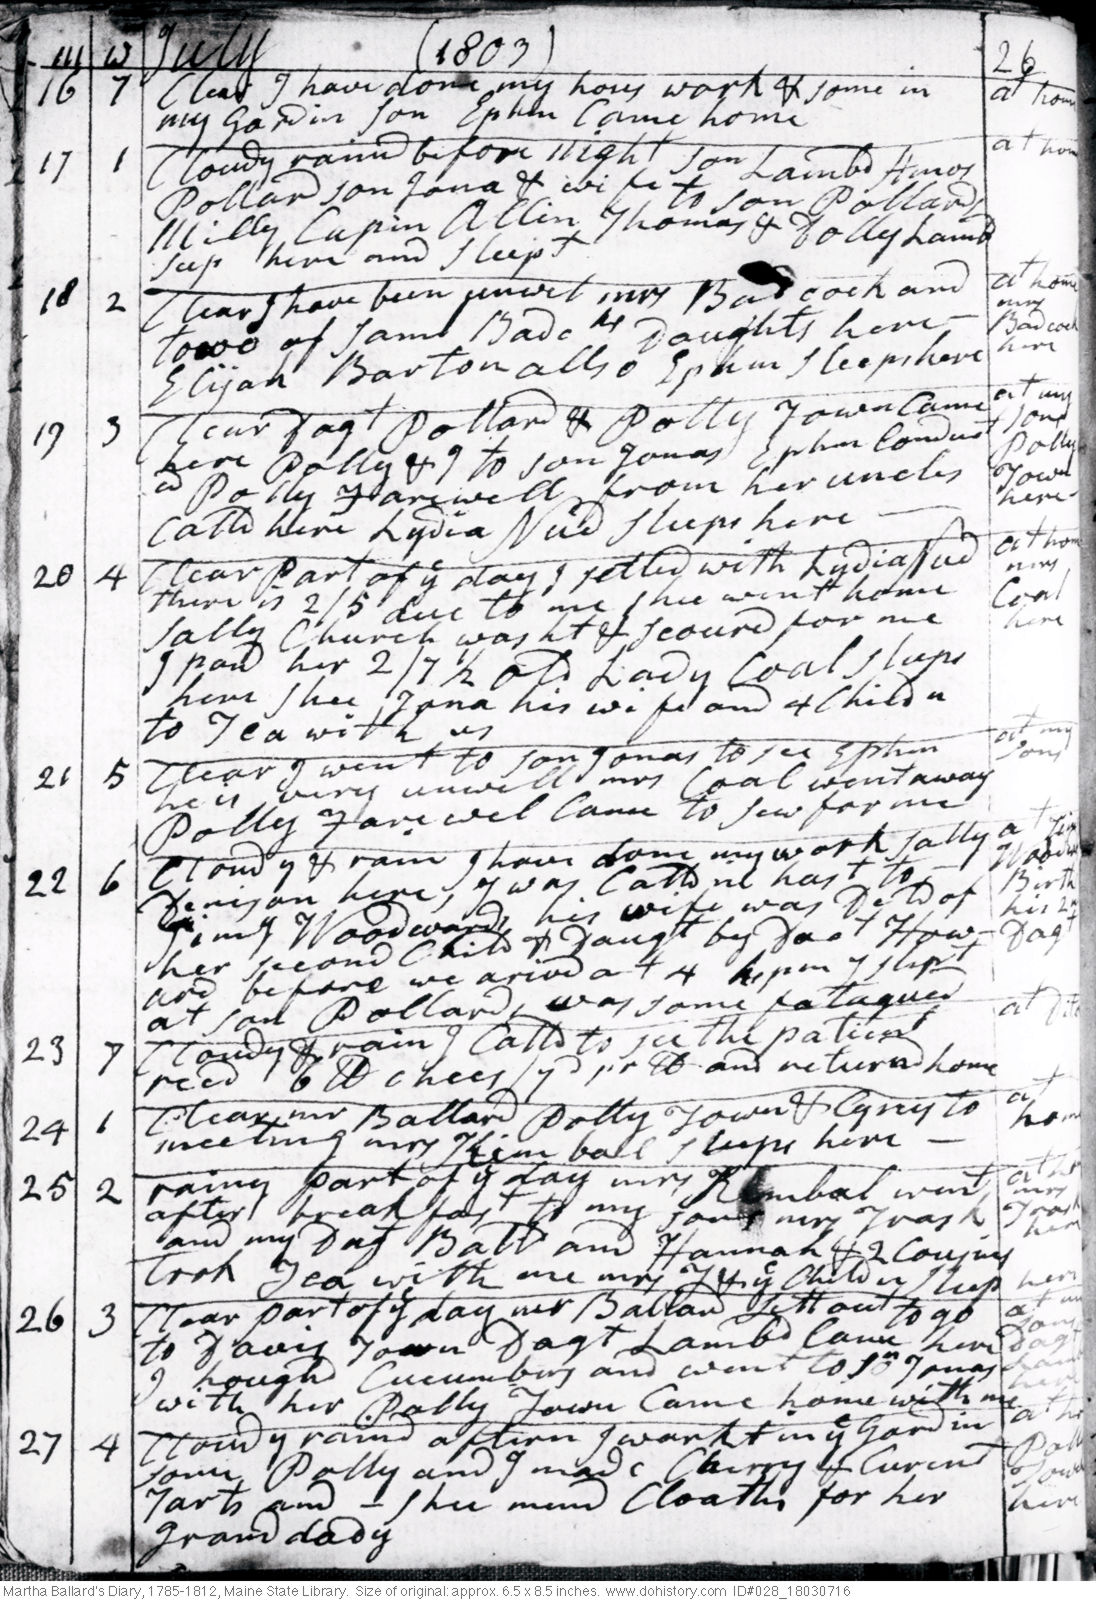 m w July (1803) 26
16 7 Clear I have done my hous work & some in at home
my Gardin son Ephm Came home
17 1 Cloudy raind before Night son Lambd Amos at home
Pollard son Jona & wife to son Pollards
Milly Cupin Allin Thomas & Dolly Lambd
sup here and sleept
18 2 Clear I have been unwel mrs Badcock and at home
towo of Saml Badcks Daughts here – mrs Badcock
Elijah Barton allso Ephm sleeps here here
19 3 Clear Dagt Pollard & Polly Town Came at my
here Polly & I to son Jonas Ephm Conduct sons
d Polly Farewell from her uncles Polly Town
Calld here Lydia Nud sleeps here – here –
20 4 Clear Part of ye day I setled with Lydia Nud at home
there is 2/5 due to me shee went home mrs
Sally Church washt & scourd for me Coal
I paid her 2/7 ½ old Lady Coal sleeps here
here shee Jona his wife and 4 Childn
to Tea with us
21 5 Clear I went to son Jonas to see Ephm at my
he is very unwell mrs Coal went away sons
Polly Farewel Came to sew for me
22 6 Cloudy & rain I have done my work Sally at Jim
Denison here, I was Calld in hast to – Woodwd
Jimy Woodwards his wife was Deld of Birth
her second Child & Daugt by Doct How– his 2nd
ard before we arived at 4 h pm I slept Dagt
at son Pollards, was some fatagued
23 7 Cloudy & rain I Calld to see the patient at Dito
recd 6 lb chees /9d pr lb and returnd home
24 1 Clear mr Ballard Polly Town & Cyrus to at
meeting mrs Kimball sleeps here – home
25 2 rainy part of ye day mrs Kimbal went
after breakfast to my sons mrs Trask mrs Trask
and my Dagt Ball and Hannah & 2 Cousins here
took Tea with me mrs T & ye Childn sleep here
26 3 Clear part of ye day mr Ballard sett out to go at my
to Davis Town Dagt Lambd Came here sons Dagt
I hough'd Cucumbers and went to sn Jonas
with her Polly Town Came home with me here
27 4 Cloudy raind aftern I workt in ye Gardin
some Polly and I made Cherry & Curent Polly
Tarts and – shee mend Cloaths for her Town
Grand dady here
Martha Ballard's Diary, 1785-1812, Maine State Library. Size of original: approx. 6.5 x 8.5 inches. www.dohistory.com ID#028_18030716